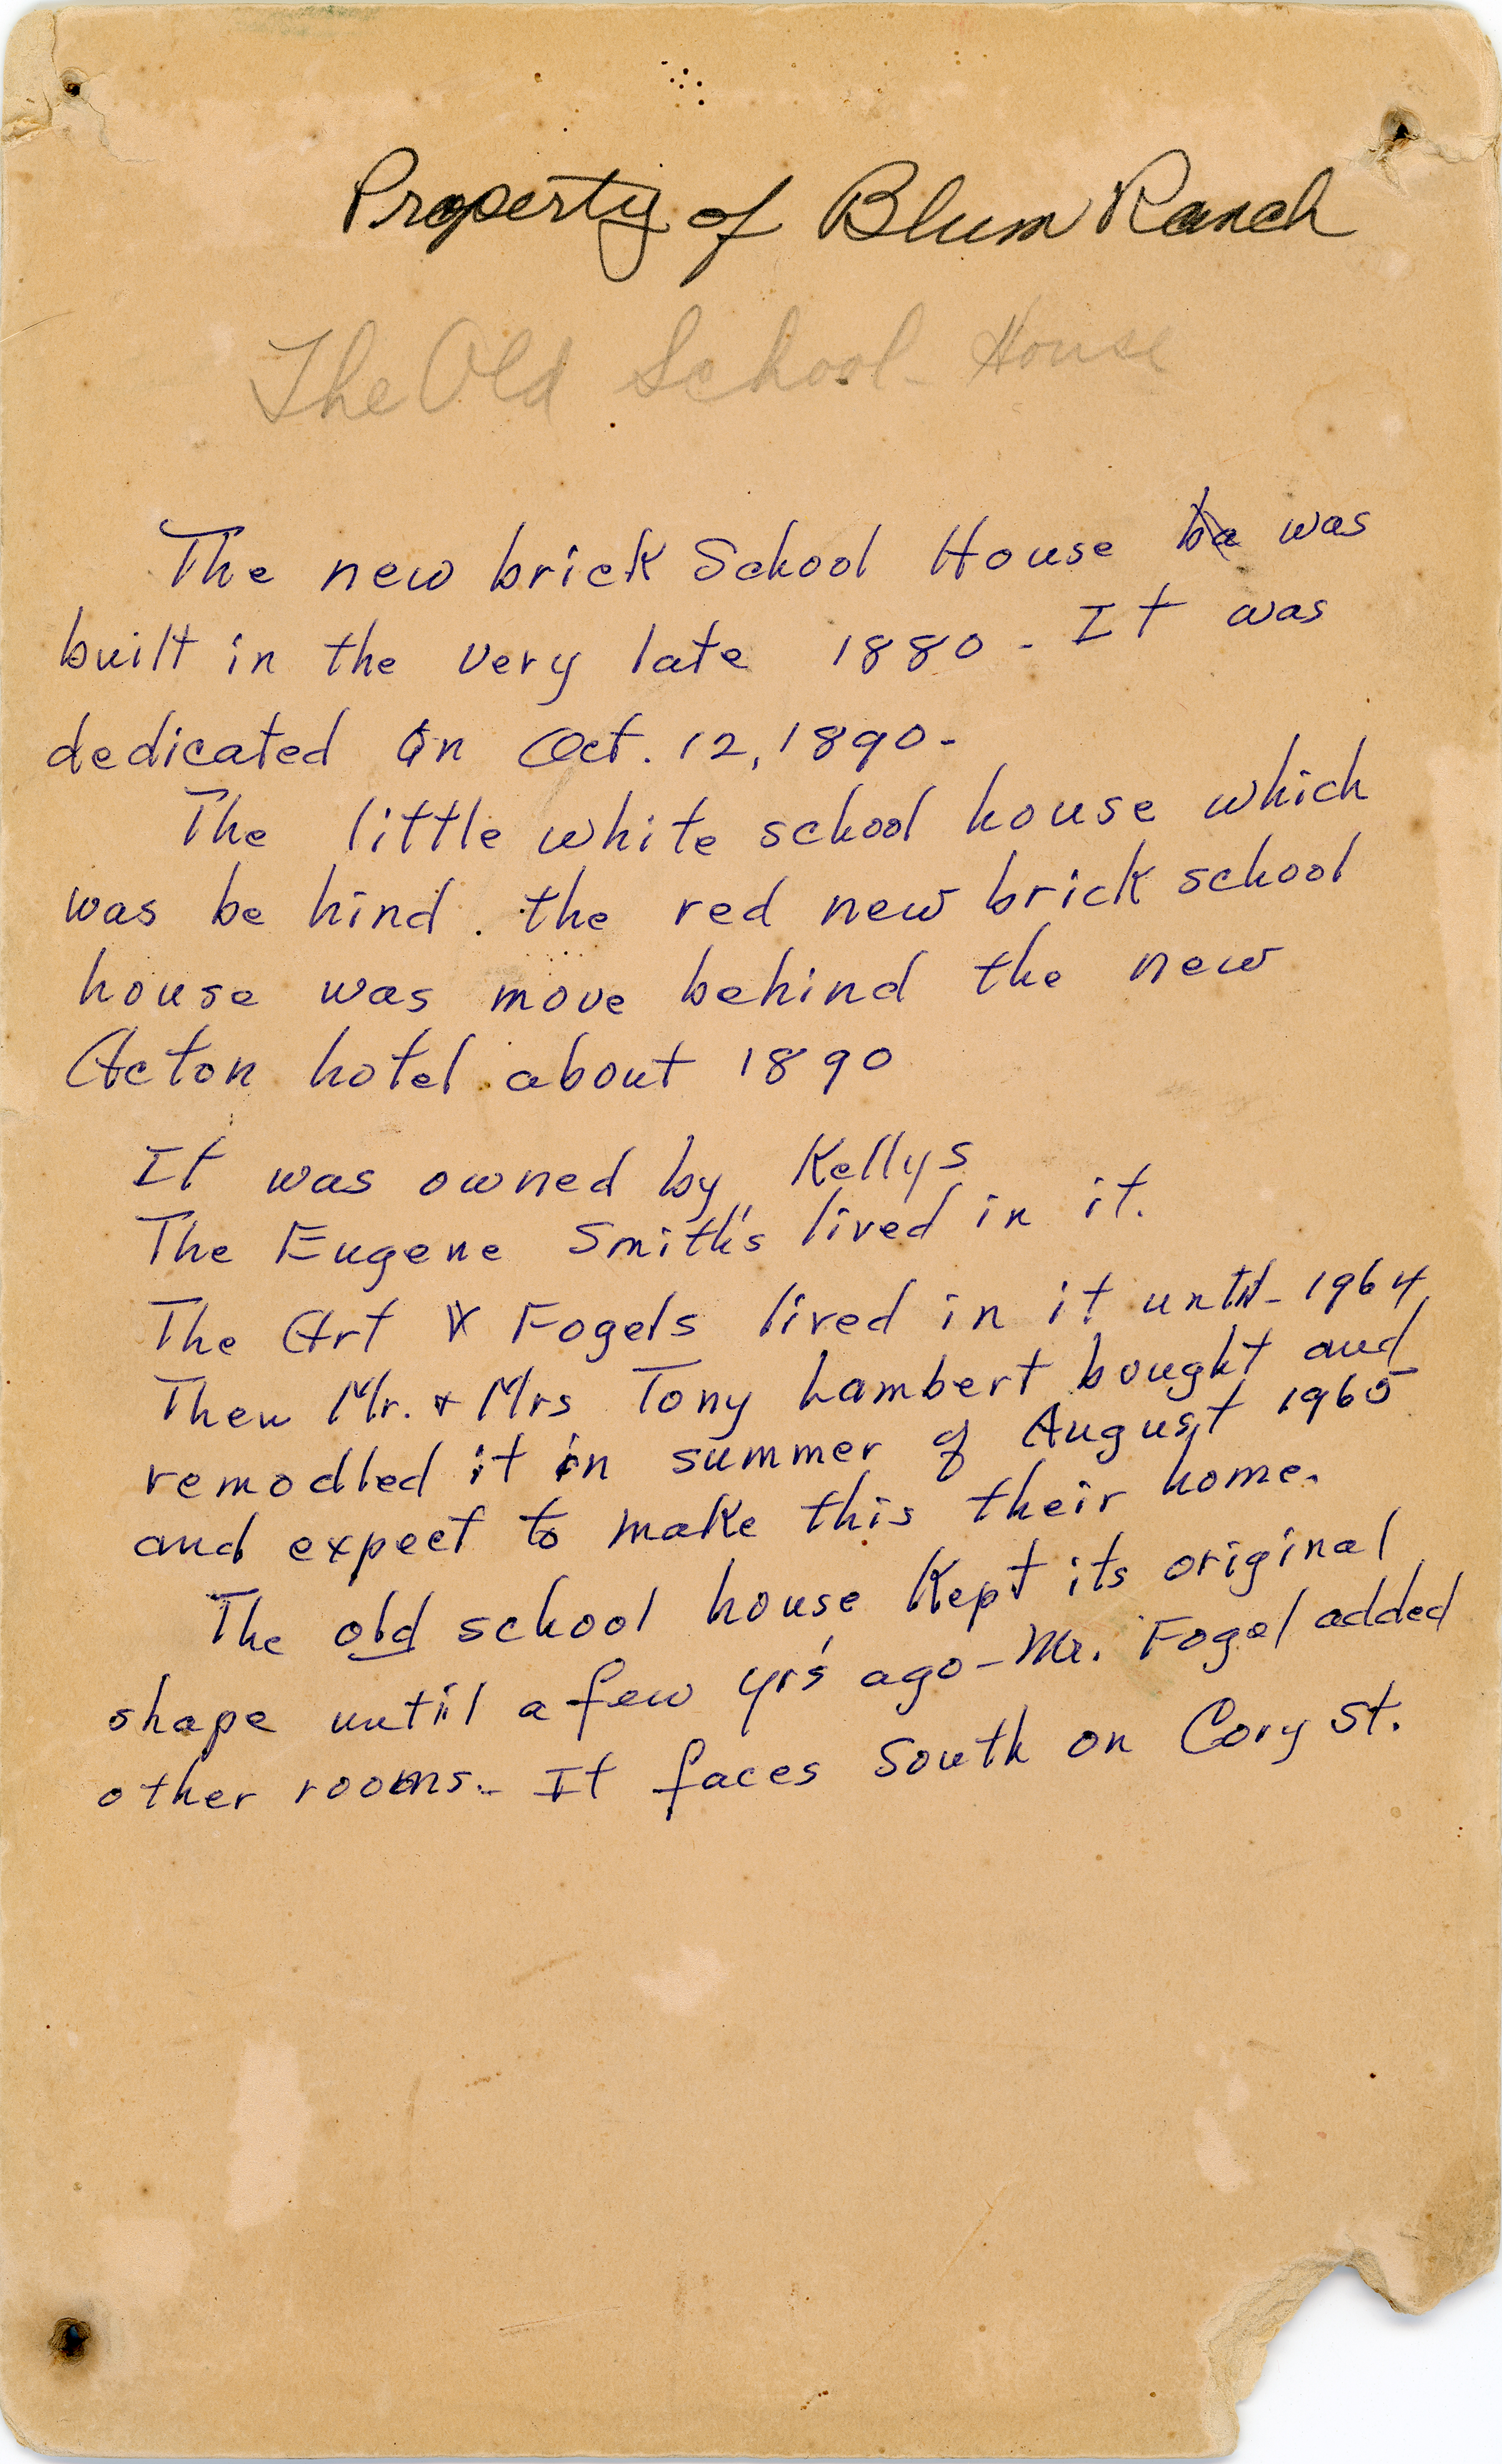 Property of Blum Ranch
The Old School - House
The new brick School House ba was
built in the very late 1880 - It was
dedicated on Oct. 12, 1890 -
The little white school house which
was be hind . the red new brick school
house was move behind the new
Acton hotel about 1890
It was owned by Kellys
The Eugene Smith's lived in it.
The Art Fogels lived in it until - 1964
Then Mr. + Mrs Tony Lambert bought and
remodled it in summer of August 1965
and expect to make this their home.
The old school house Kept its original
shape until a few yr's ago - Mr. Fogel added
other rooms. - It faces South on Cory St.